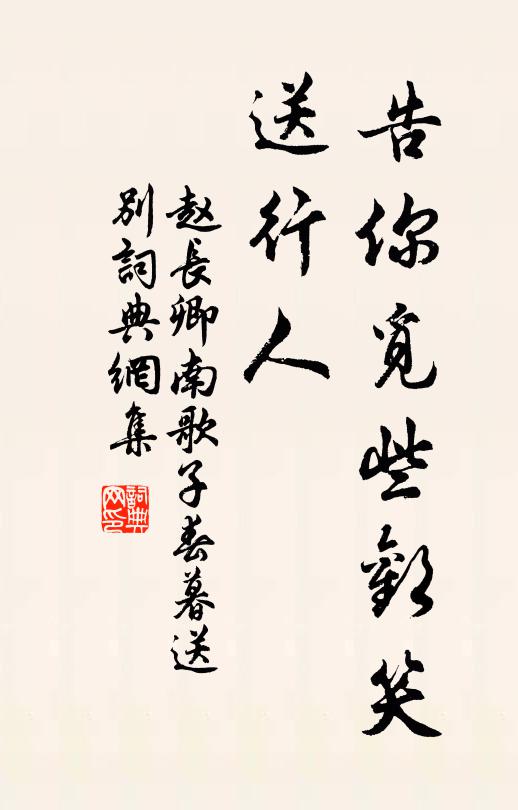 告你覓些歡笑
送行人
赵長卿南歌子春暮送
别詞典網集
詞典
网印